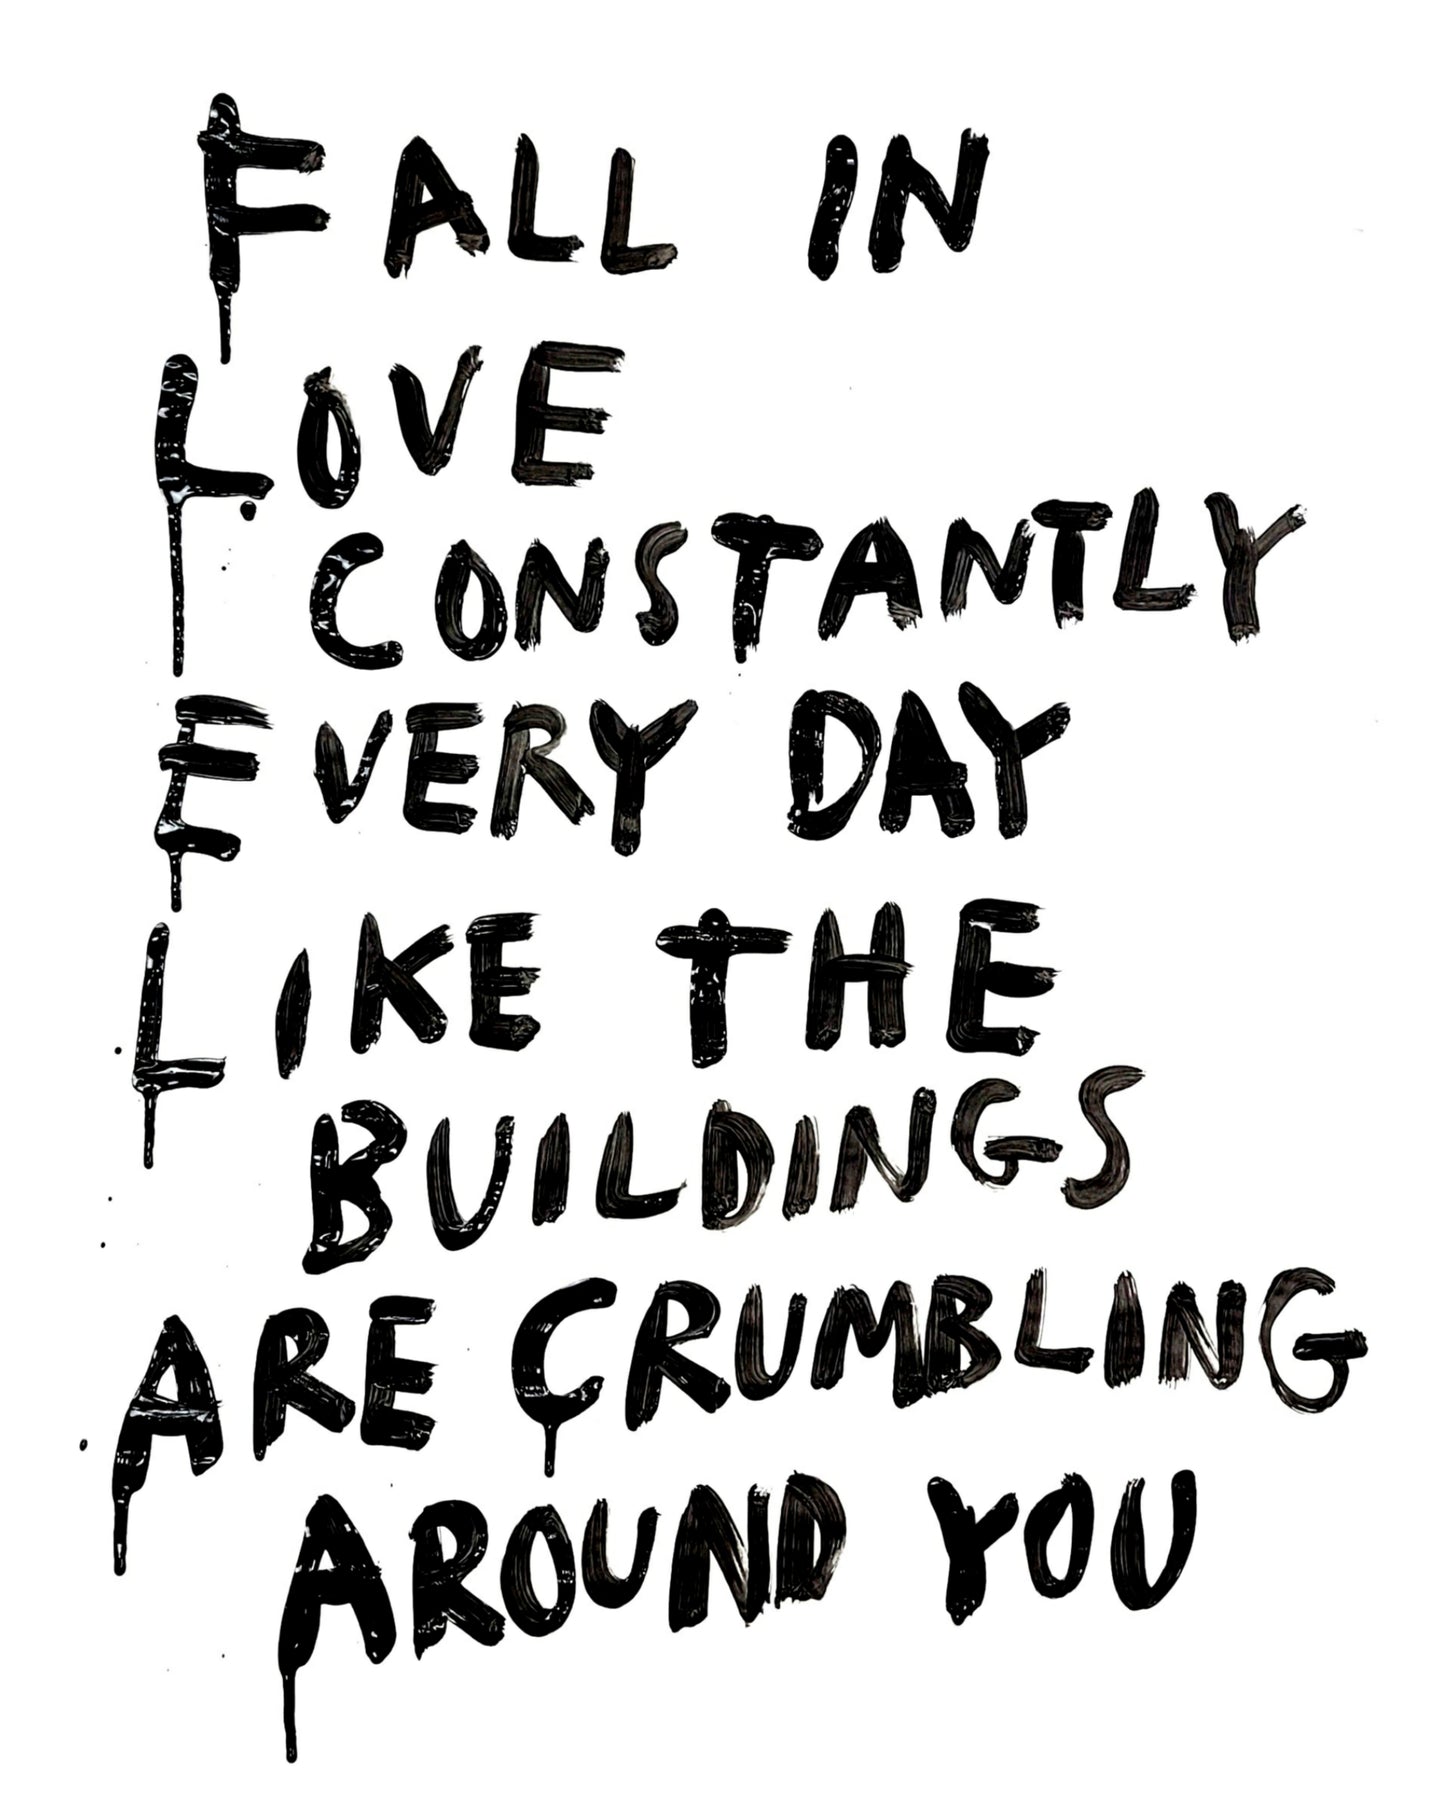 FALL IN
LOVE
CONSTANTLY
EVERY DAY
LIKE THE
BUILDINGS
ARE CRUMBLING
AROUND YOU